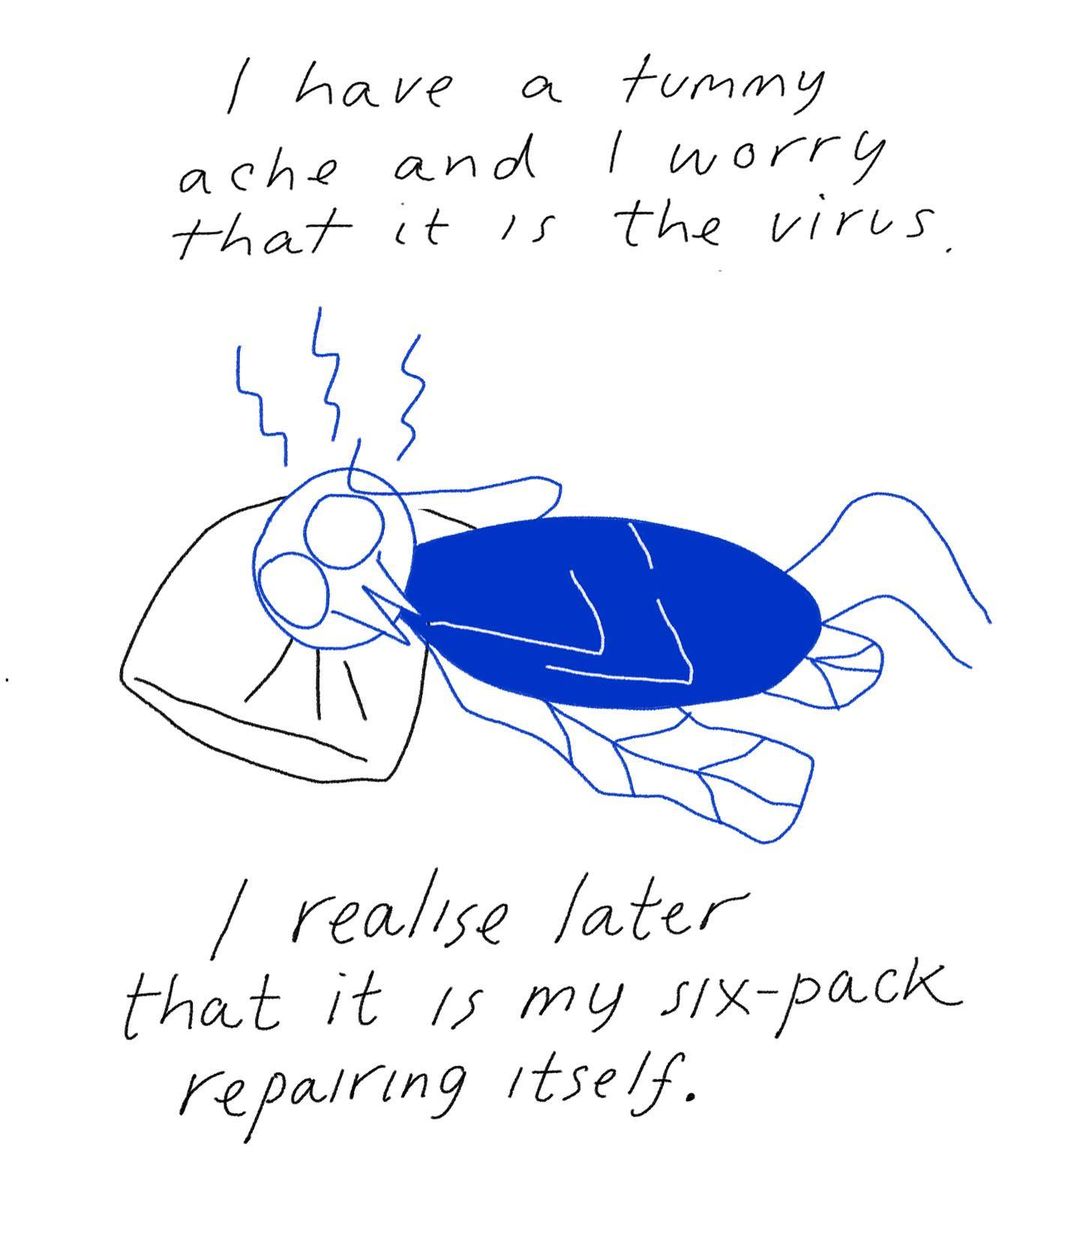 I have a tummy
ache and I worry
that it is the virus.
I realise later
that it is my six-pack
repairing itself.